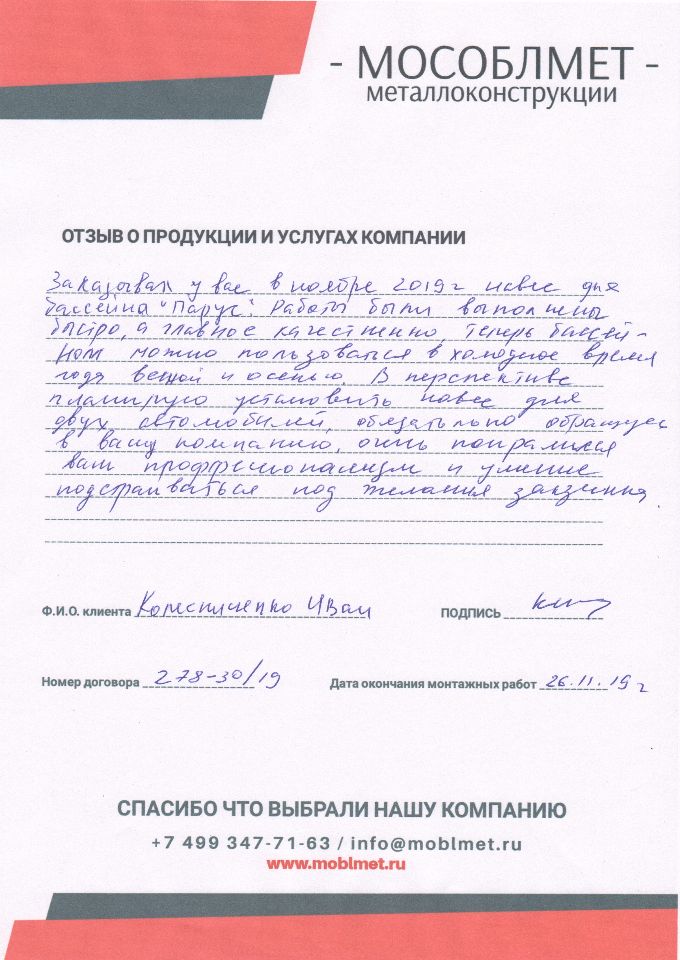 - МОСОБЛМЕТ -
металлоконструкции
ОТЗЫВ О ПРОДУКЦИИ И УСЛУГАХ КОМПАНИИ
Заказывал у вас в ноябре 2019 г навес для
бассейна "Парус". Работы были выполнены
быстро, а главное качественно, теперь бассей-
ном можно пользоваться в холодное время
года весной и осенью. В перспективе
планирую установить навес для
двух автомобилей, обязательно обращусь
в вашу компанию, очень понравился
ваш профессионализм и умение
подстраиваться под желания заказчика.
Ф.И.О. клиента Иван
ПОДПИСЬ
Номер договора 278-30/19
Дата окончания монтажных работ 26.11.19 г
СПАСИБО ЧТО ВЫБРАЛИ НАШУ КОМПАНИЮ
+7 499 347-71-63 / info@moblmet.ru
www.moblmet.ru